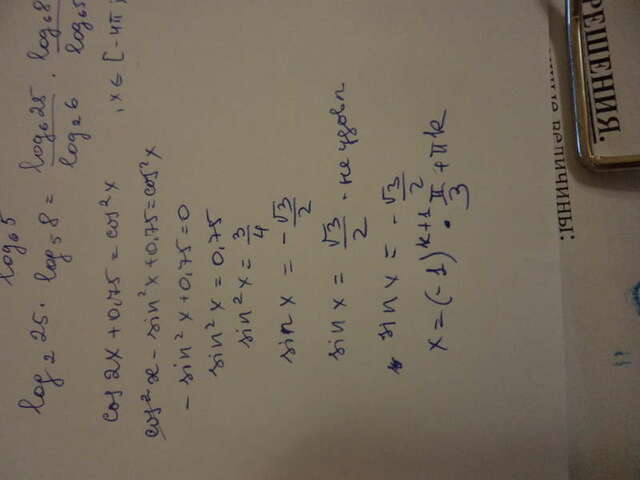 log₆5
log₂25 · log₅8 = log₆25/log₂6 · log₆8/log₆5
cos2x + 0,75 = cos²x , x ∈ [-4π;
cos²x - sin²x + 0,75 = cos²x
- sin²x + 0,75 = 0
sin²x = 0,75
sin²x = 3/4
sin x = - √3/2
sin x = √3/2 · не удовл
sin x = - √3/2
x = (-1)ᵏ⁺¹ · π/3 + πk
РЕШЕНИЯ.
величины: